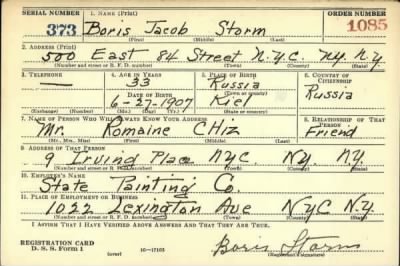 SERIAL NUMBER 1. NAME (Print) ORDER NUMBER
373 Boris Jacob Storm 1085
(First) (Middle) (Last)
2. ADDRESS (Print)
500 East 84 Street N.Y.C. N.Y. N.Y.
(Number and street or R. F. D. number) (Town) (County) (State)
3. TELEPHONE 4. AGE IN YEARS 5. PLACE OF BIRTH 6. COUNTRY OF CITIZENSHIP
— 33 Russia
(Town or county)
DATE OF BIRTH Russia
6-27-1907 Kiel
(Exchange) (Number) (Mo.) (Day) (Yr.) (State or country)
7. NAME OF PERSON WHO WILL ALWAYS KNOW YOUR ADDRESS 8. RELATIONSHIP OF THAT PERSON
Mr. Romaine CHiz Friend
(Mr., Mrs., Miss) (First) (Middle) (Last)
9. ADDRESS OF THAT PERSON
9 Irving Place NYC N.Y. N.Y.
(Number and street or R. F. D. number) (Town) (County) (State)
10. EMPLOYER'S NAME
State Painting Co.
11. PLACE OF EMPLOYMENT OR BUSINESS
1022 Lexington Ave NYC N.Y.
(Number and street or R. F. D. number) (Town) (County) (State)
I AFFIRM THAT I HAVE VERIFIED ABOVE ANSWERS AND THAT THEY ARE TRUE.
REGISTRATION CARD
D. S. S. Form 1 (over) 16—17105 Boris Storm
(Registrant's signature)